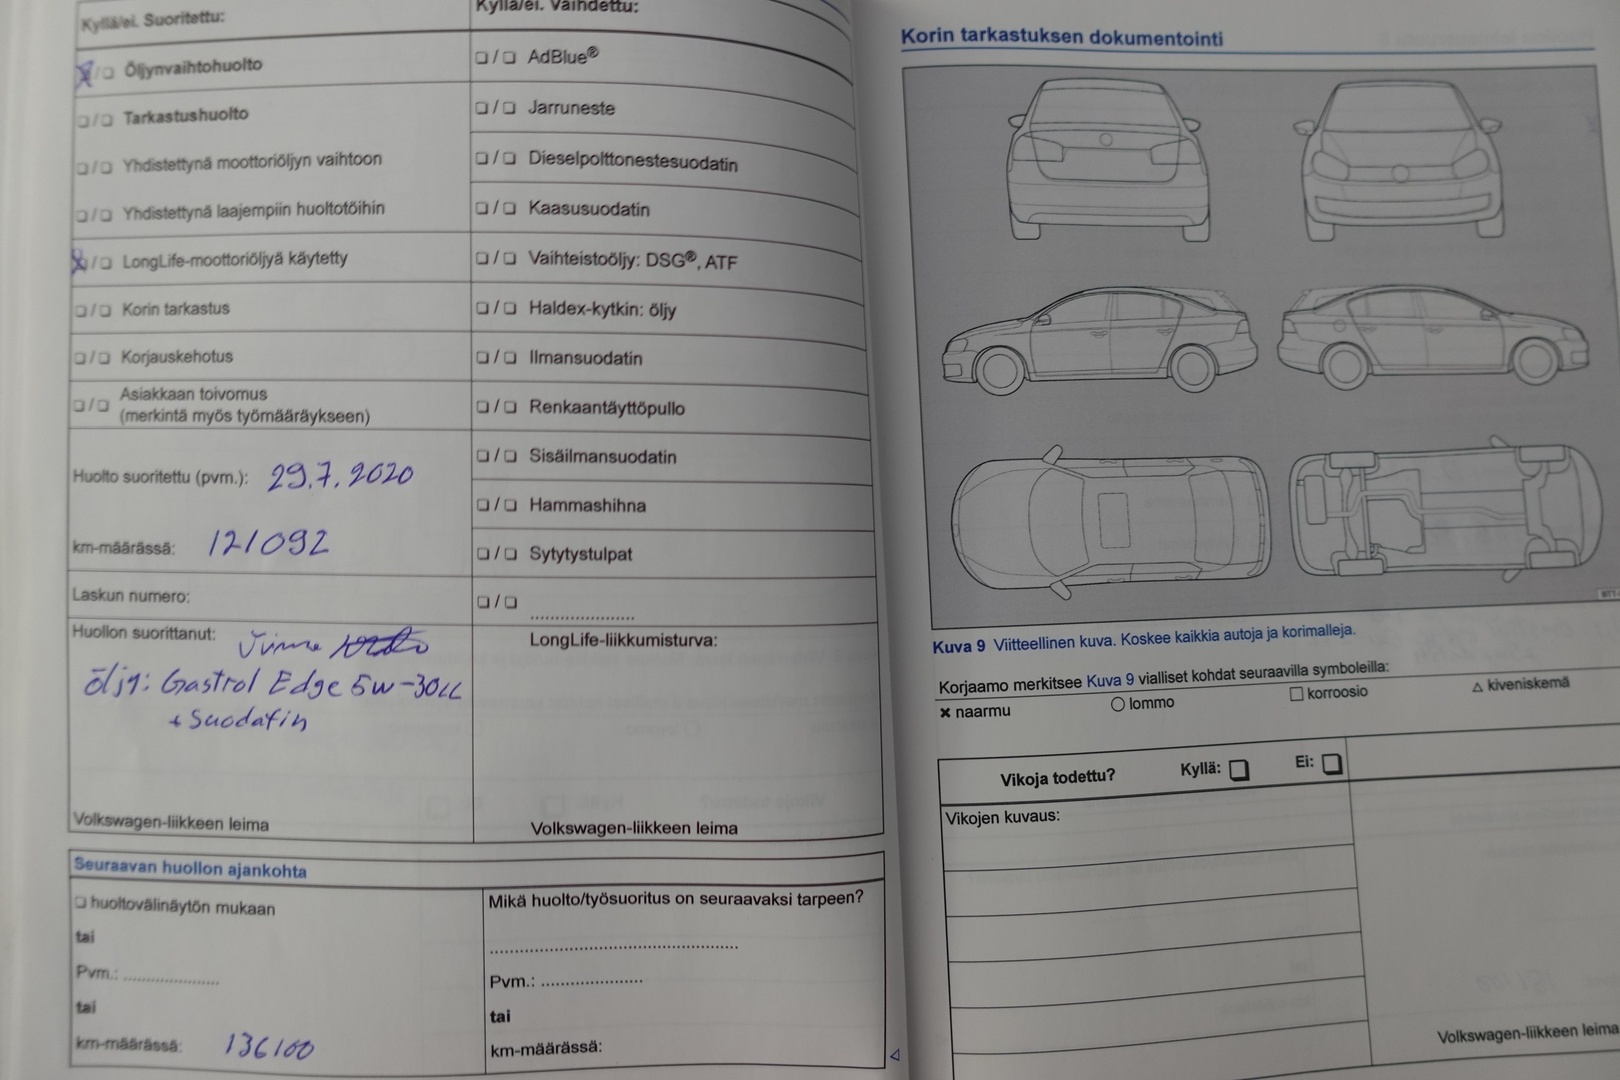 Kyllä/ei. Suoritettu:
❏/❏ Öljynvaihtohuolto
❏/❏ Tarkastushuolto
❏/❏ Yhdistettynä moottoriöljyn vaihtoon
❏/❏ Yhdistettynä laajempiin huoltotöihin
❏/❏ LongLife-moottoriöljyä käytetty
❏/❏ Korin tarkastus
❏/❏ Korjauskehotus
❏/❏ Asiakkaan toivomus
(merkintä myös työmääräykseen)
Huolto suoritettu (pvm.): 29.7.2020
km-määrässä: 121092
Laskun numero:
Huollon suorittanut:
öljy: Gastrol Edge 5w-30LL
+ Suodatin
Volkswagen-liikkeen leima
Kyllä/ei. Vaihdettu:
❏/❏ AdBlue®
❏/❏ Jarruneste
❏/❏ Dieselpolttonestesuodatin
❏/❏ Kaasusuodatin
❏/❏ Vaihteistoöljy: DSG®, ATF
❏/❏ Haldex-kytkin: öljy
❏/❏ Ilmansuodatin
❏/❏ Renkaantäyttöpullo
❏/❏ Sisäilmansuodatin
❏/❏ Hammashihna
❏/❏ Sytytystulpat
❏/❏ .....................
LongLife-liikkumisturva:
Volkswagen-liikkeen leima
Seuraavan huollon ajankohta
❏ huoltovälinäytön mukaan
tai
Pvm.: ...................
tai
km-määrässä: 136100
Mikä huolto/työsuoritus on seuraavaksi tarpeen?
..................................................
Pvm.: .....................
tai
km-määrässä:
Korin tarkastuksen dokumentointi
Kuva 9 Viitteellinen kuva. Koskee kaikkia autoja ja korimalleja.
Korjaamo merkitsee Kuva 9 vialliset kohdat seuraavilla symboleilla:
✖ naarmu ○ lommo □ korroosio △ kiveniskemä
Vikoja todettu? Kyllä: ❏ Ei: ❏
Vikojen kuvaus:
Volkswagen-liikkeen leima